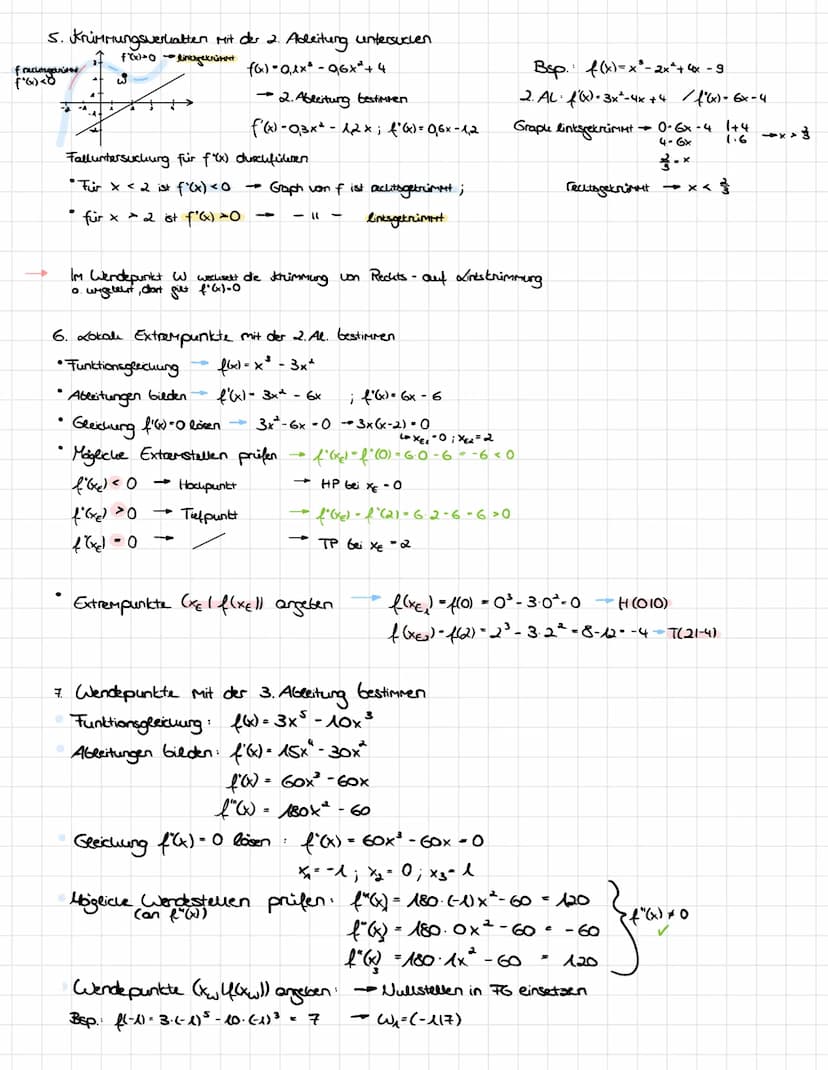 5. Krümmungsverhalten mit der 2. Ableitung untersuchen
f''(x)>0 → linksgekrümmt
f rechtsgekrümmt
f''(x)<0
W
f(x) = 0,1x³ - 0,6x² + 4
→ 2. Ableitung bestimmen
f'(x) = 0,3x² - 1,2x ; f''(x) = 0,6x - 1,2
Bsp.: f(x) = x³ - 2x² + 4x - 9
2. AL: f'(x) = 3x² - 4x + 4 / f''(x) = 6x - 4
Graph linksgekrümmt → 0 = 6x - 4 |+4 → x > 2/3
4 = 6x |:6
2/3 = x
rechtsgekrümmt → x < 2/3
Falluntersuchung für f''(x) durchführen
• Für x < 2 ist f''(x) < 0 → Graph von f ist rechtsgekrümmt ;
• für x > 2 ist f''(x) > 0 → - " - linksgekrümmt
→ Im Wendepunkt W wechselt die Krümmung von Rechts- auf Linkskrümmung
o. umgekehrt, dort gilt f''(x)=0
6. Lokale Extrempunkte mit der 2. Al. bestimmen
• Funktionsgleichung → f(x) = x³ - 3x²
• Ableitungen bilden → f'(x) = 3x² - 6x ; f''(x) = 6x - 6
• Gleichung f'(x)=0 lösen → 3x² - 6x = 0 → 3x(x-2) = 0
↳ xE1 = 0 ; xE2 = 2
• Mögliche Extremstellen prüfen → f''(xE) = f''(0) = 6·0 - 6 = -6 < 0
f''(xE) < 0 → Hochpunkt → HP bei xE = 0
f''(xE) > 0 → Tiefpunkt → f''(xE) = f''(2) = 6·2 - 6 = 6 > 0
f''(xE) = 0 → / → TP bei xE = 2
• Extrempunkte (xE | f(xE)) angeben → f(xE1) = f(0) = 0³ - 3·0² = 0 → H(0|0)
f(xE2) = f(2) = 2³ - 3·2² = 8 - 12 = -4 → T(2|-4)
7. Wendepunkte mit der 3. Ableitung bestimmen
• Funktionsgleichung: f(x) = 3x⁵ - 10x³
• Ableitungen bilden: f'(x) = 15x⁴ - 30x²
f''(x) = 60x³ - 60x
f'''(x) = 180x² - 60
• Gleichung f''(x) = 0 lösen : f''(x) = 60x³ - 60x = 0
x₁ = -1 ; x₂ = 0 ; x₃ = 1
• Mögliche Wendestellen prüfen: f'''(x₁) = 180·(-1)x² - 60 = 120
(an f'''(x))
f'''(x₂) = 180·0x² - 60 = -60
f'''(x₃) = 180·1x² - 60 = 120
f'''(x) ≠ 0 ✓
• Wendepunkte (xW | f(xW)) angeben: → Nullstellen in FG einsetzen
Bsp.: f(-1) = 3·(-1)⁵ - 10·(-1)³ = 7 → W₁ = (-1|7)